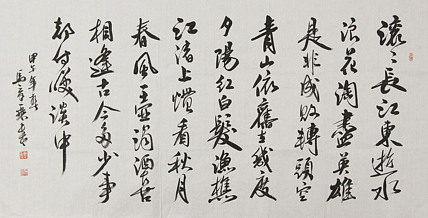 滚々長江東逝水
浪花淘盡英雄
是非成敗轉頭空
青山依舊在幾度
夕陽紅白髮漁樵
江渚上慣看秋月
春風一壺濁酒喜
相逢古今多少事
都付笑談中
甲午年春
馬